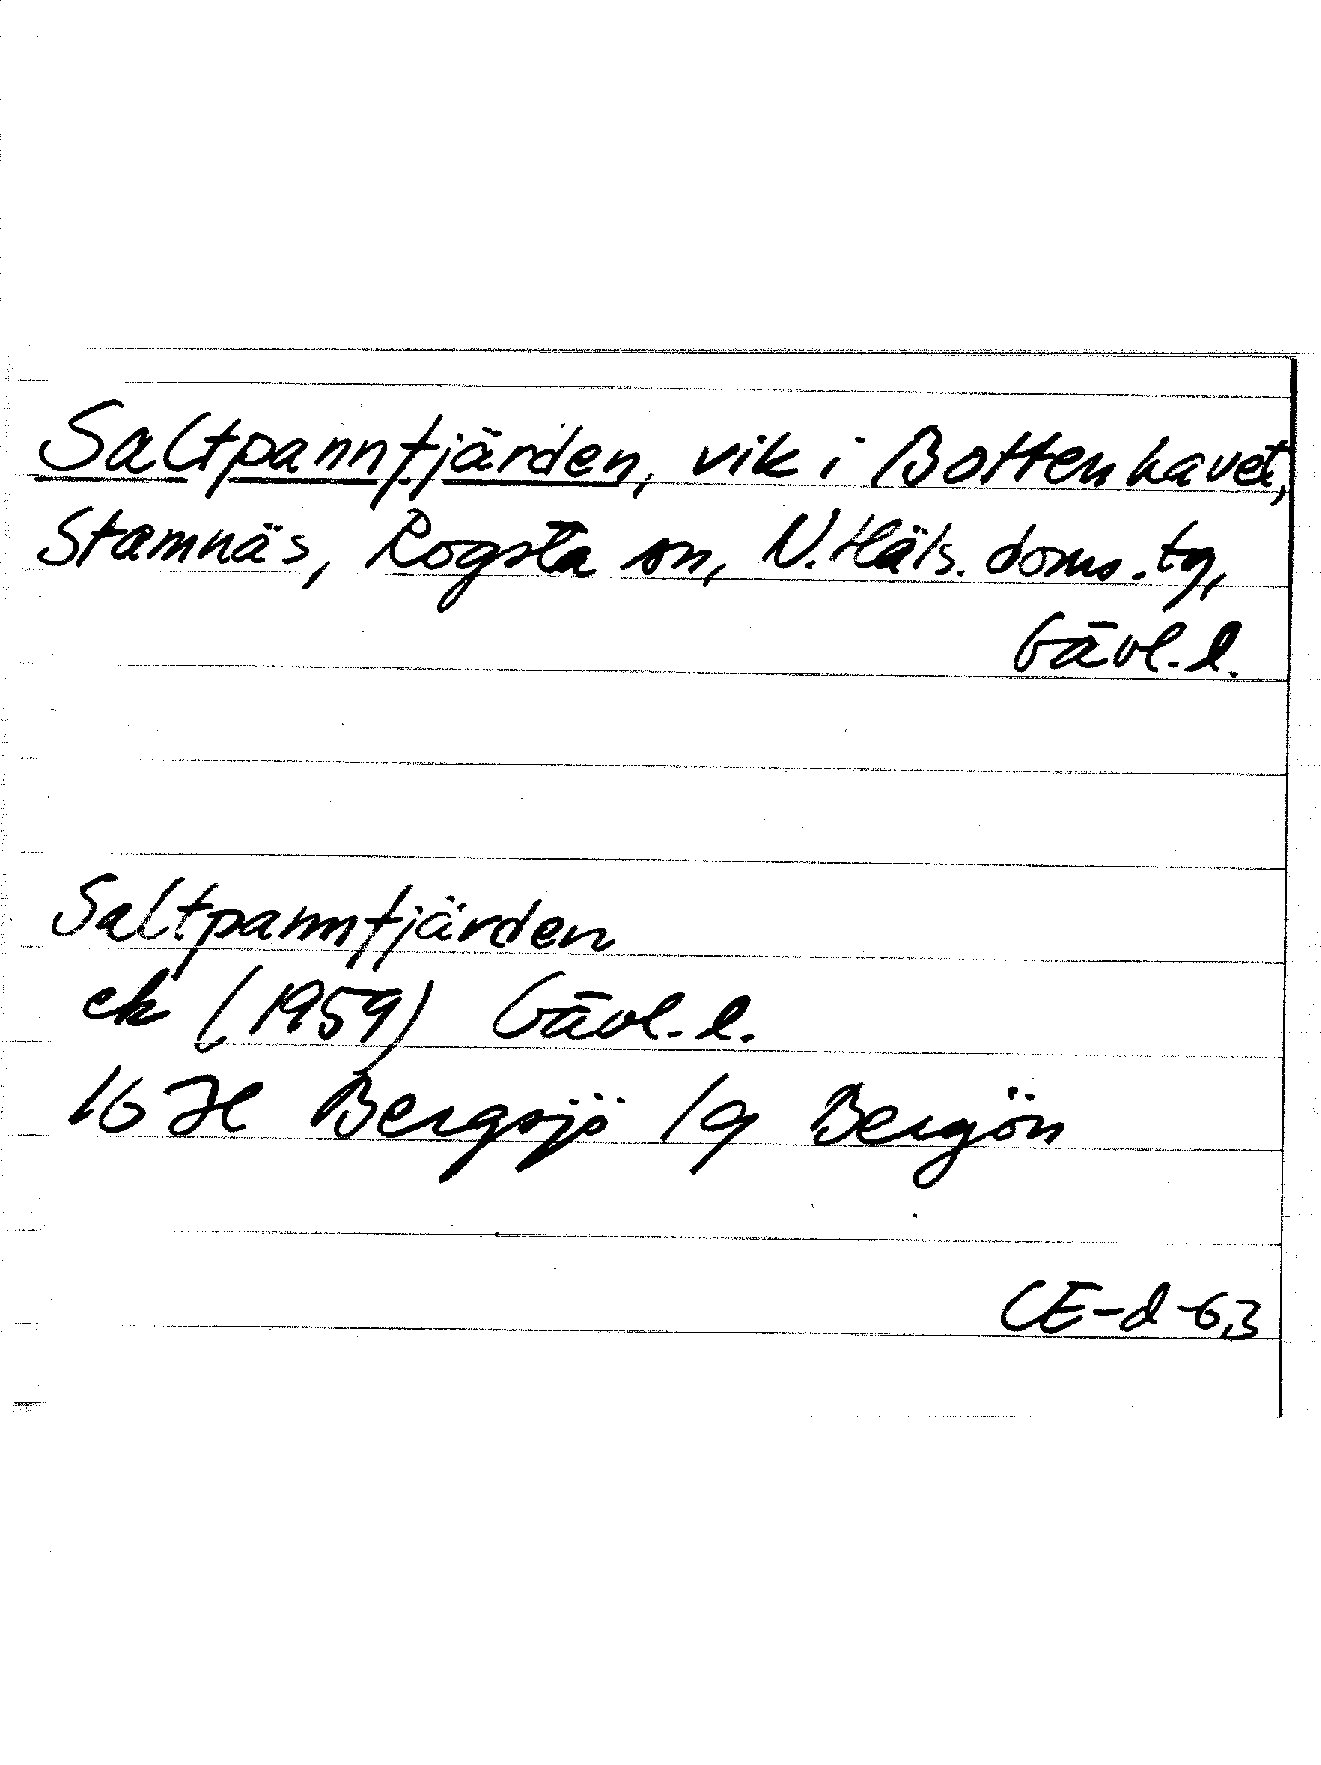 Saltpannfjärden, vik i Bottenhavet,
Stamnäs, Rogsta sn, N. Häls. doms. tg,
Gävl. l.
Saltpannfjärden
ek (1959) Gävl. l.
16 H Bergsjö 1g Bergön
CE-d-6,3